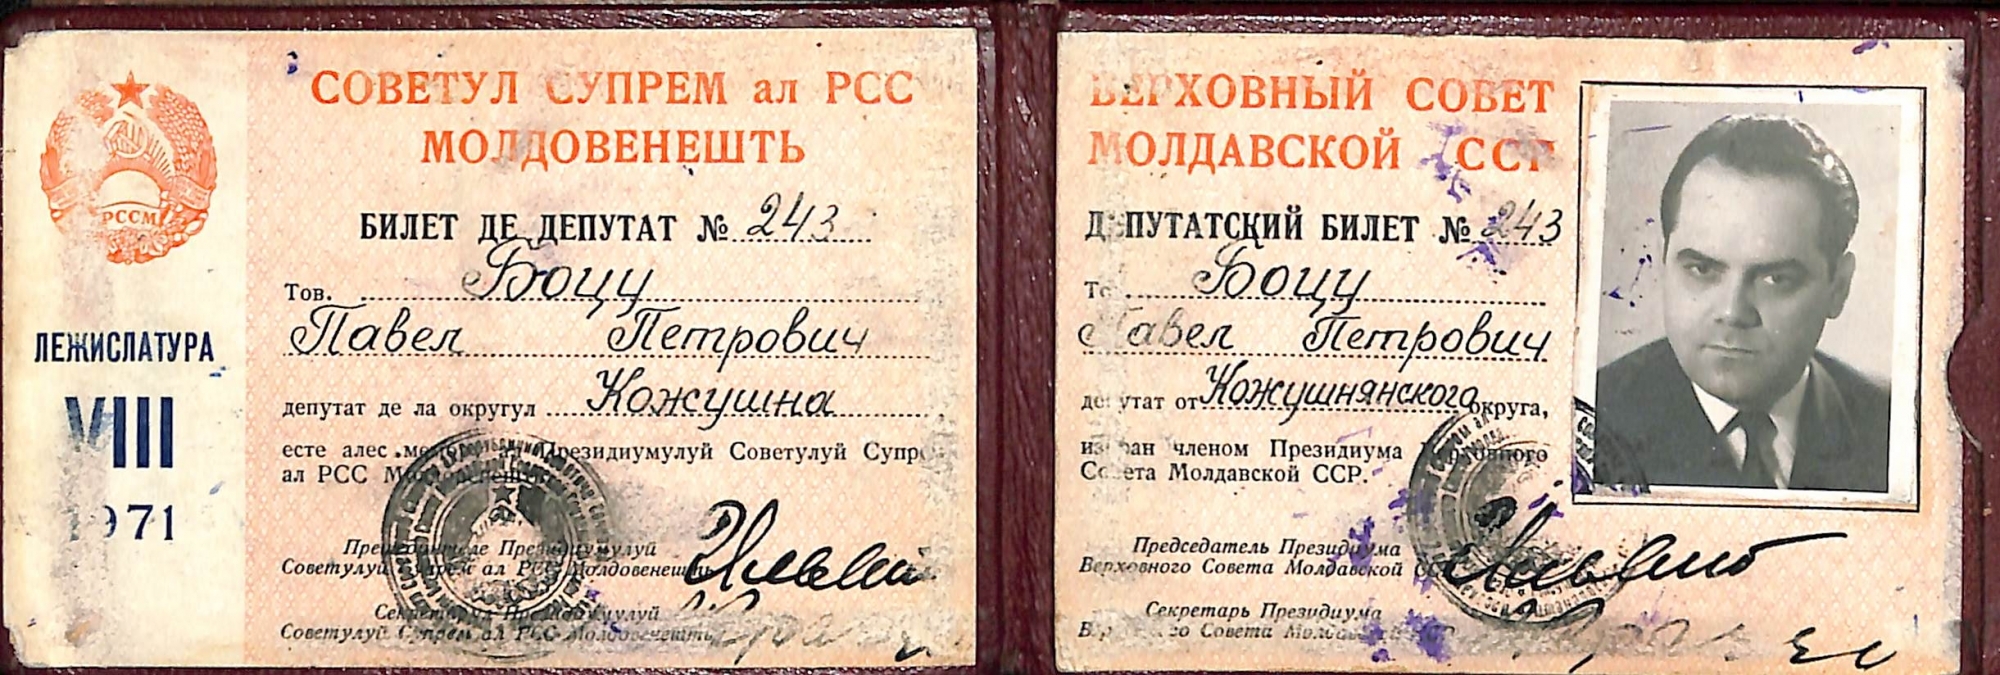 РССМ
ЛЕЖИСЛАТУРА
VIII
1971
СОВЕТУЛ СУПРЕМ ал РСС
МОЛДОВЕНЕШТЬ
БИЛЕТ ДЕ ДЕПУТАТ № 243
Тов. Боцу
Павел Петрович
депутат де ла округул Кожушна
есте алес мембру ал Президиумулуй Советулуй Супрем
ал РСС Молдовенешть
Президиумулуй
Советулуй Супрем ал РСС Молдовенешть
Секретарул Президиумулуй
Советулуй Супрем ал РСС Молдовенешть
ВЕРХОВНЫЙ СОВЕТ
МОЛДАВСКОЙ ССР
ДЕПУТАТСКИЙ БИЛЕТ № 243
Тов. Боцу
Павел Петрович
депутат от Кожушнянского округа,
избран членом Президиума Верховного
Совета Молдавской ССР.
Председатель Президиума
Верховного Совета Молдавской ССР
Секретарь Президиума
Верховного Совета Молдавской ССР